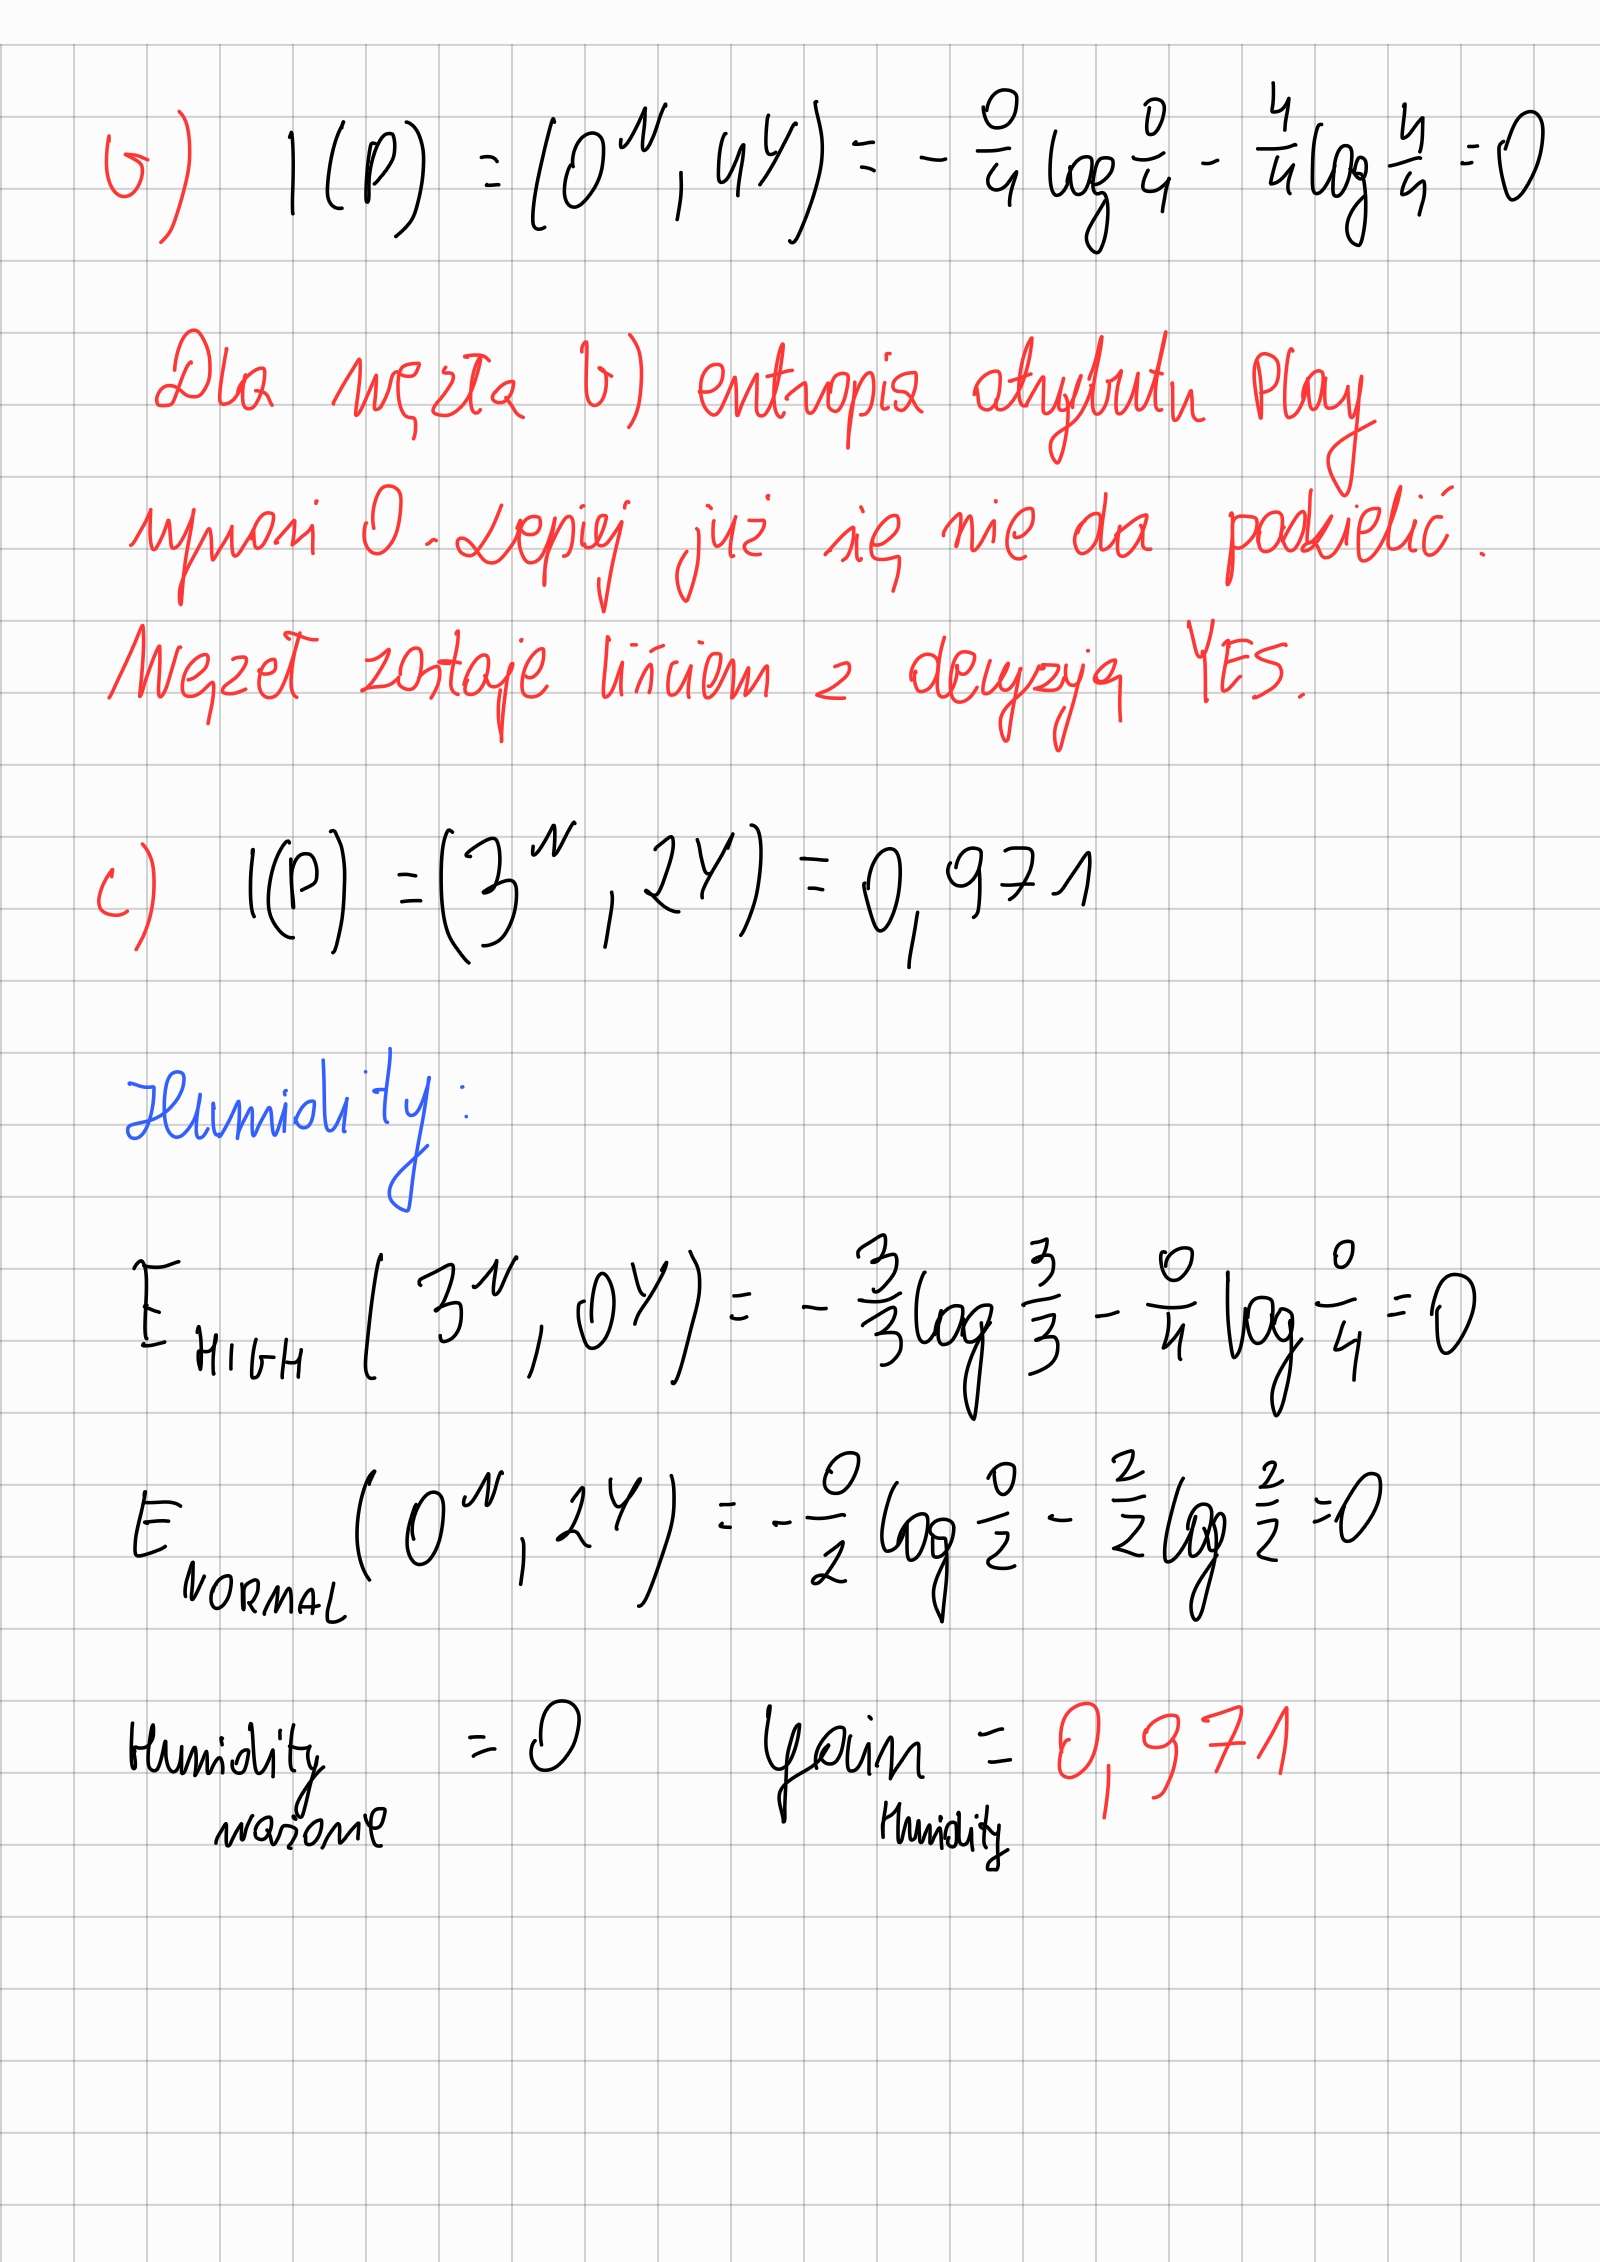 b) I(P) = (0N, 4Y) = - 0/4 log 0/4 - 4/4 log 4/4 = 0
Dla węzła b) entropia atrybutu Play
wynosi 0. Lepiej już się nie da podzielić.
Węzeł zostaje liściem z decyzją YES.
c) I(P) = (3N, 2Y) = 0,971
Humidity:
E HIGH (3N, 0Y) = - 3/3 log 3/3 - 0/4 log 0/4 = 0
E NORMAL (0N, 2Y) = - 0/2 log 0/2 - 2/2 log 2/2 = 0
Humidity ważone = 0 gain Humidity = 0,971